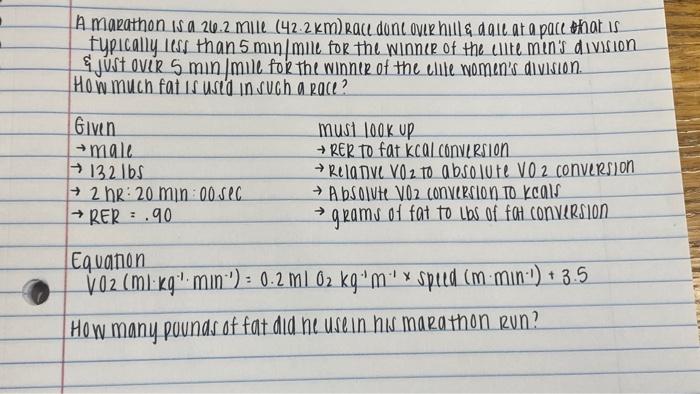 A marathon is a 26.2 mile (42.2 km) race done over hill & dale at a pace that is
typically less than 5 min/mile for the winner of the elite men's division
& just over 5 min/mile for the winner of the elite women's division.
How much fat is used in such a race?
Given
→ male
→ 132 lbs
→ 2 hr: 20 min: 00 sec
→ RER = .90
must look up
→ RER to fat kcal conversion
→ Relative VO2 to absolute VO2 conversion
→ Absolute VO2 conversion to kcals
→ grams of fat to lbs of fat conversion
Equation
VO2 (ml·kg⁻¹·min⁻¹) = 0.2 ml O2 kg⁻¹ m⁻¹ x speed (m·min⁻¹) + 3.5
How many pounds of fat did he use in his marathon run?